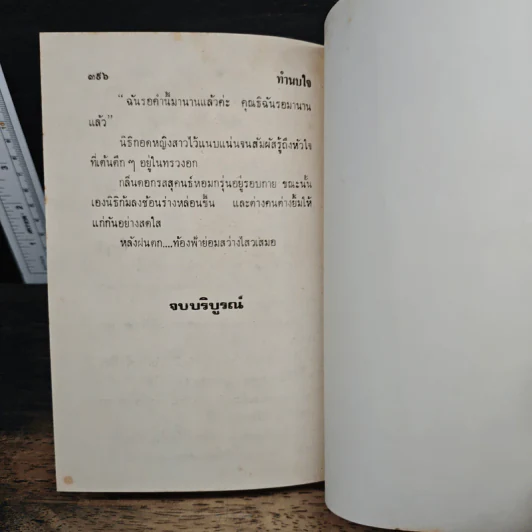 ๓๕๖ ทำนบใจ
“ฉันรอคำนี้มานานแล้วค่ะ คุณธิฉันรอมานาน
แล้ว”
นิธิกอดหญิงสาวไว้แนบแน่นจนสัมผัสรู้ถึงหัวใจ
ที่เต้นตึก ๆ อยู่ในทรวงอก
กลิ่นดอกรสสุคนธ์หอมกรุ่นอยู่รอบกาย ขณะนั้น
เองนิธิก้มลงช้อนร่างหล่อนขึ้น และต่างคนต่างยิ้มให้
แก่กันอย่างสดใส
หลังฝนตก....ท้องฟ้าย่อมสว่างไสวเสมอ
จบบริบูรณ์